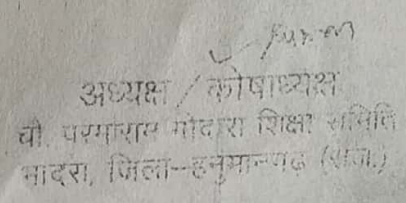 अध्यक्ष / कोषाध्यक्ष
चौ. परमाराम गोदारा शिक्षा समिति
भादरा, जिला-हनुमानगढ़ (राज.)